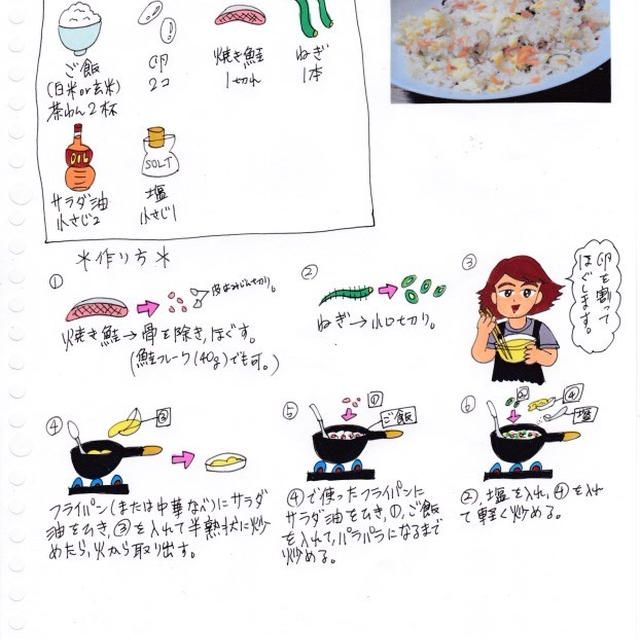 ご飯
(白米or玄米)
茶わん2杯
卵
2コ
焼き鮭
1切れ
ねぎ
1本
OIL
サラダ油
小さじ2
SOLT
塩
小さじ1
*作り方*
①
皮はみじん切り。
焼き鮭→骨を除き,ほぐす。
(鮭フレーク(40g)でも可。)
②
ねぎ→小口切り。
③
卵を割って
ほぐします。
④
③
フライパン(または中華なべ)にサラダ
油をひき,③を入れて半熟状に炒
めたら,火から取り出す。
⑤
①
ご飯
④で使ったフライパンに
サラダ油をひき,①,ご飯
を入れて,パラパラになるまで
炒める。
⑥
②
④
塩
②,塩を入れ,④を入れ
て軽く炒める。